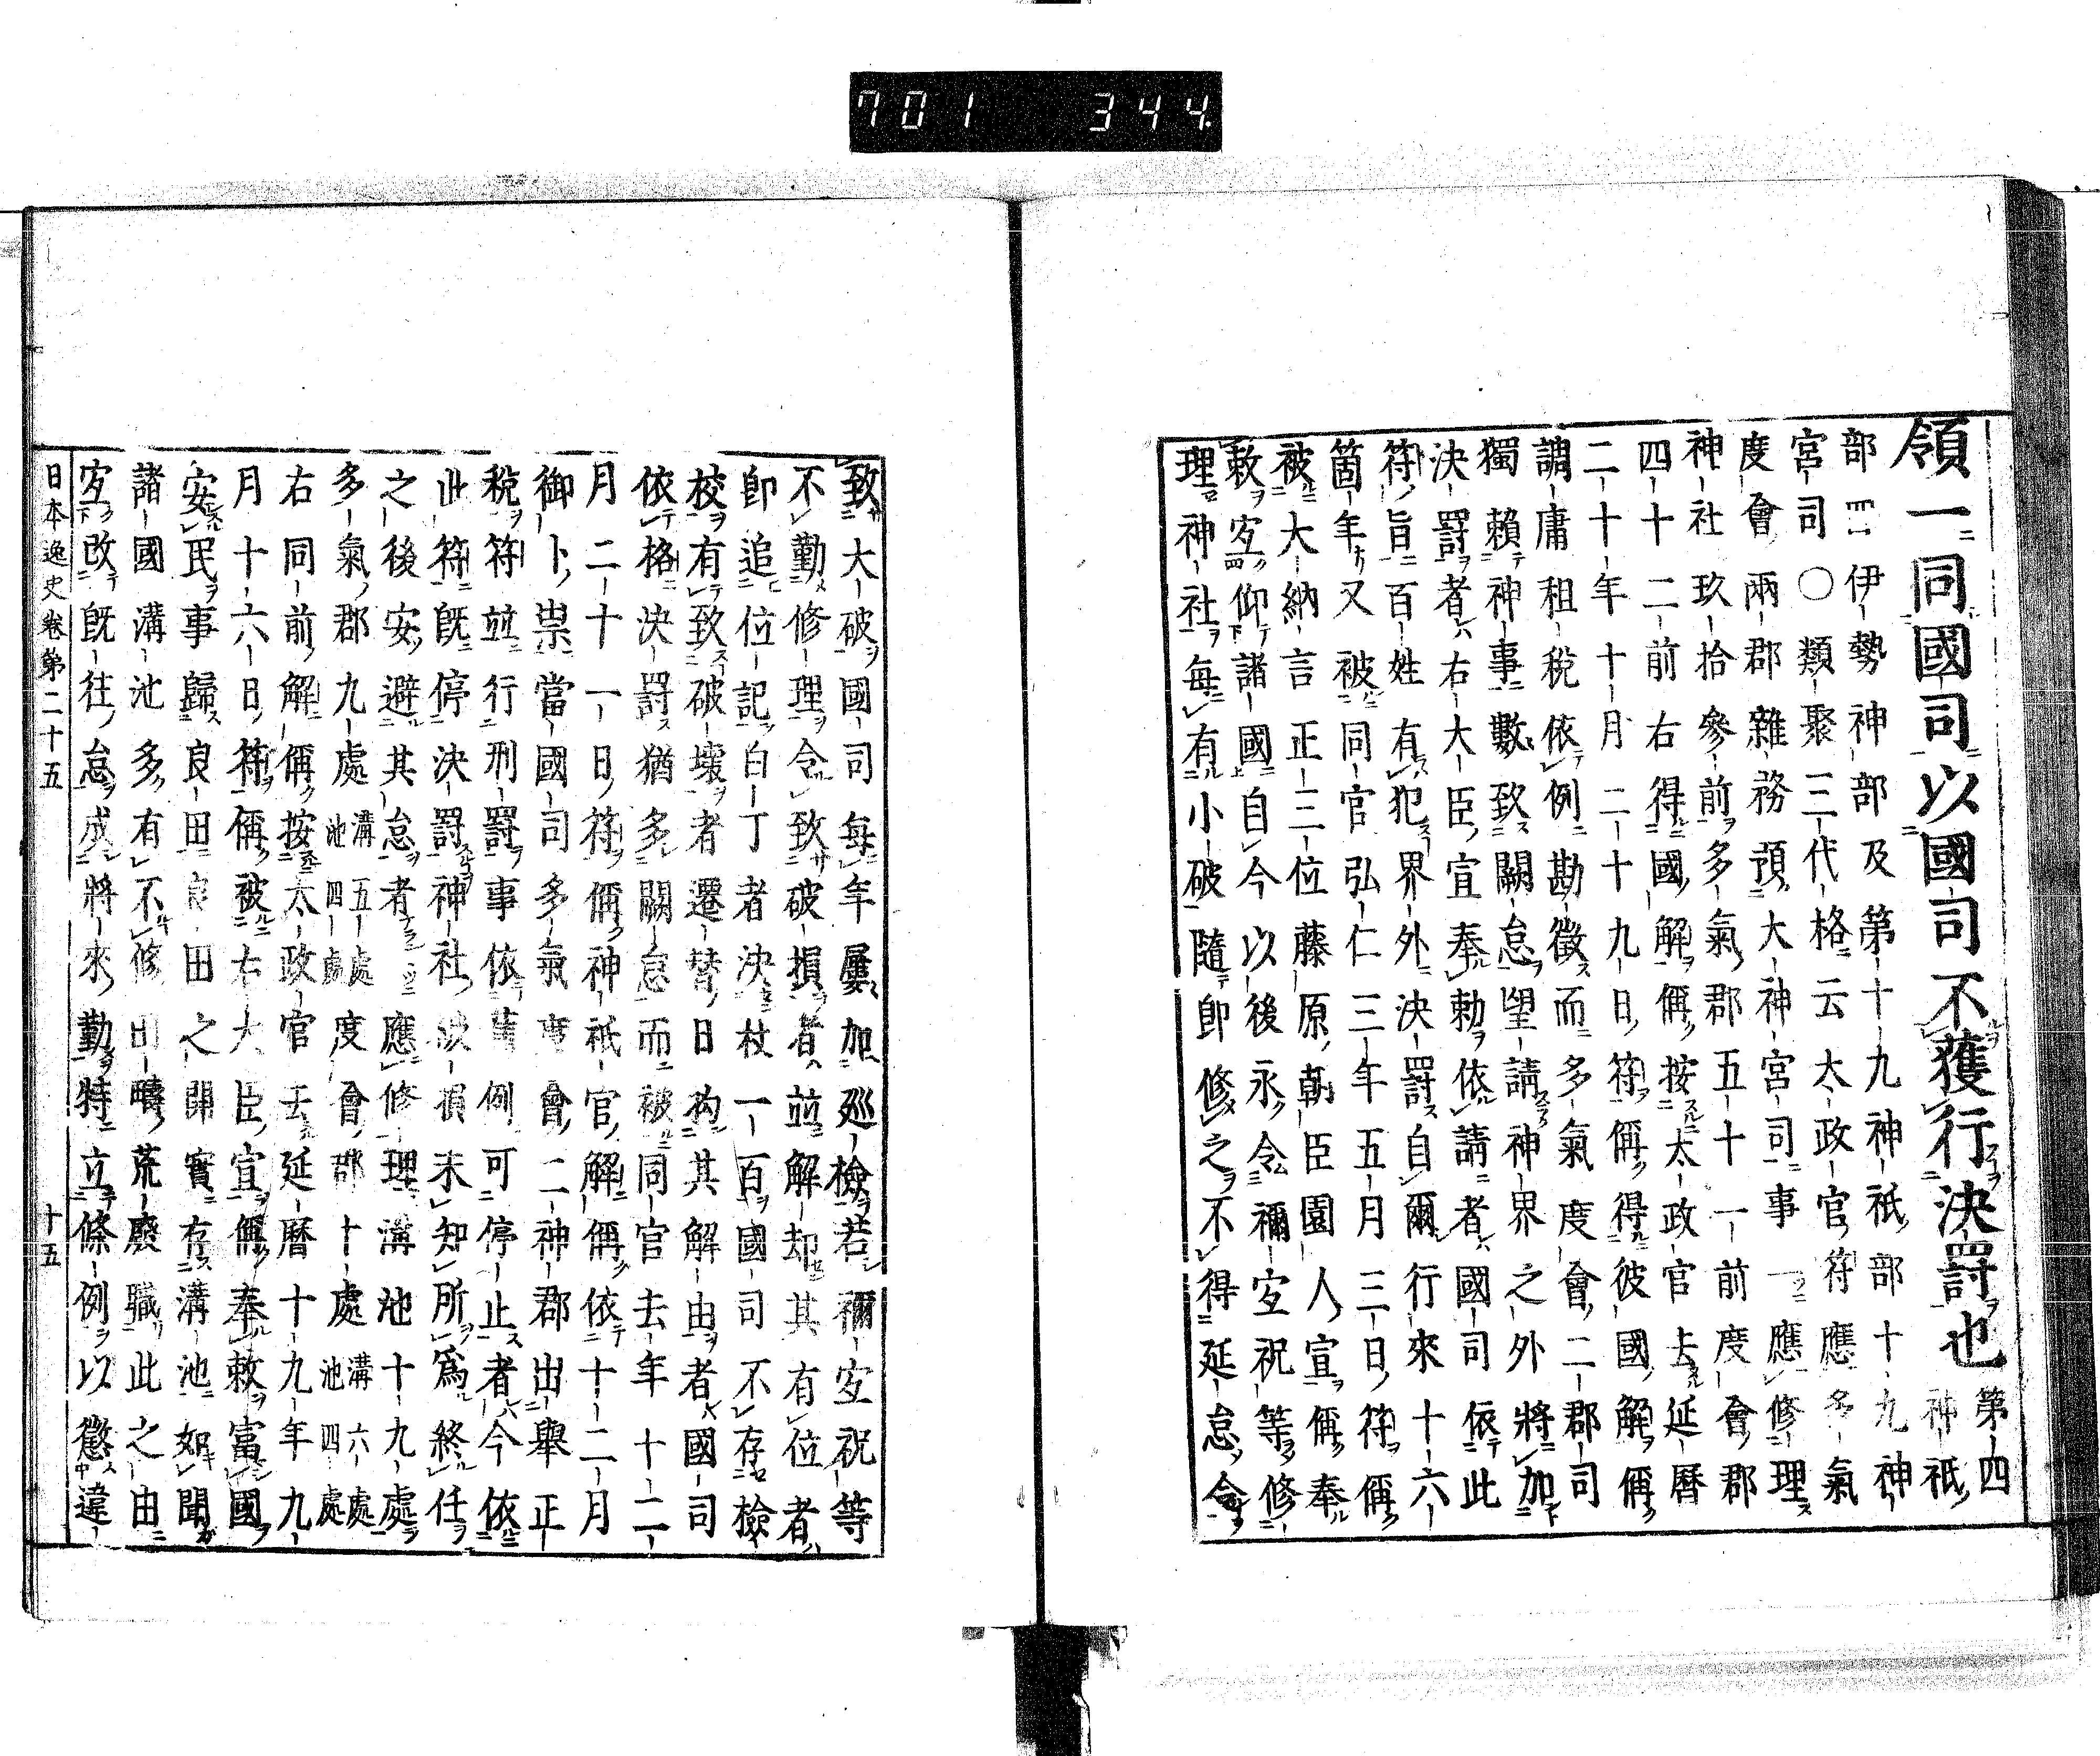 701 344
領一同國司以國司不獲行決罰也 第四 神祇
部四一伊勢神部及第十九神祇部十九神
宮司〇類聚三代格云太政官符應多氣
度會兩郡雜務預大神宮司事一應修理
神社玖拾參前多氣郡五十一前度會郡
四十二前右得國解偁按太政官去延曆
二十年十月二十九日符偁得彼國解偁
調庸租稅依例勘徵而多氣度會二郡司
獨賴神事數致闕怠望請神界之外將加
決罰者右大臣宣奉勅依請者國司依此
符旨百姓有犯界外決罰自爾行來十六
箇年又被同官弘仁三年五月三日符偁
被大納言正三位藤原朝臣園人宣偁奉
敕宐仰諸國自今以後永令禰宐祝等修
理神社每有小破隨卽修之不得延怠令
致大破國司每年屢加巡檢若禰宐祝等
不勤修理令致破損者並解却其有位者
卽追位記白丁者決杖一百國司不存檢
校有致破壞者遷替日拘其解由者國司
依格決罰猶多闕怠而被同官去年十二
月二十一日符偁神祇官解偁依十二月
御卜祟當國司多氣度會二神郡出舉正
稅符並行刑罰事依舊例可停止者今依
此符旣停決罰神社破損未知所爲終任
之後安避其怠者應修理溝池十九處
多氣郡九處溝五處池四處度會郡十處溝六處池四處
右同前解偁按太政官去延曆十九年九
月十六日符偁被右大臣宣偁奉敕富國
安民事歸良田良田之開實存溝池如聞
諸國溝池多有不修田疇荒廢職此之由
宐改旣往怠成將來勤特立條例以懲違
日本逸史卷第二十五 十五